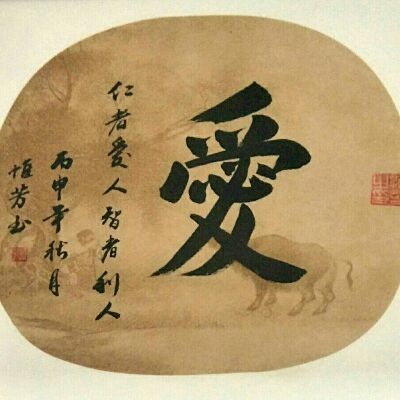 愛
仁者愛人智者利人
丙申年秋月
恒芳书